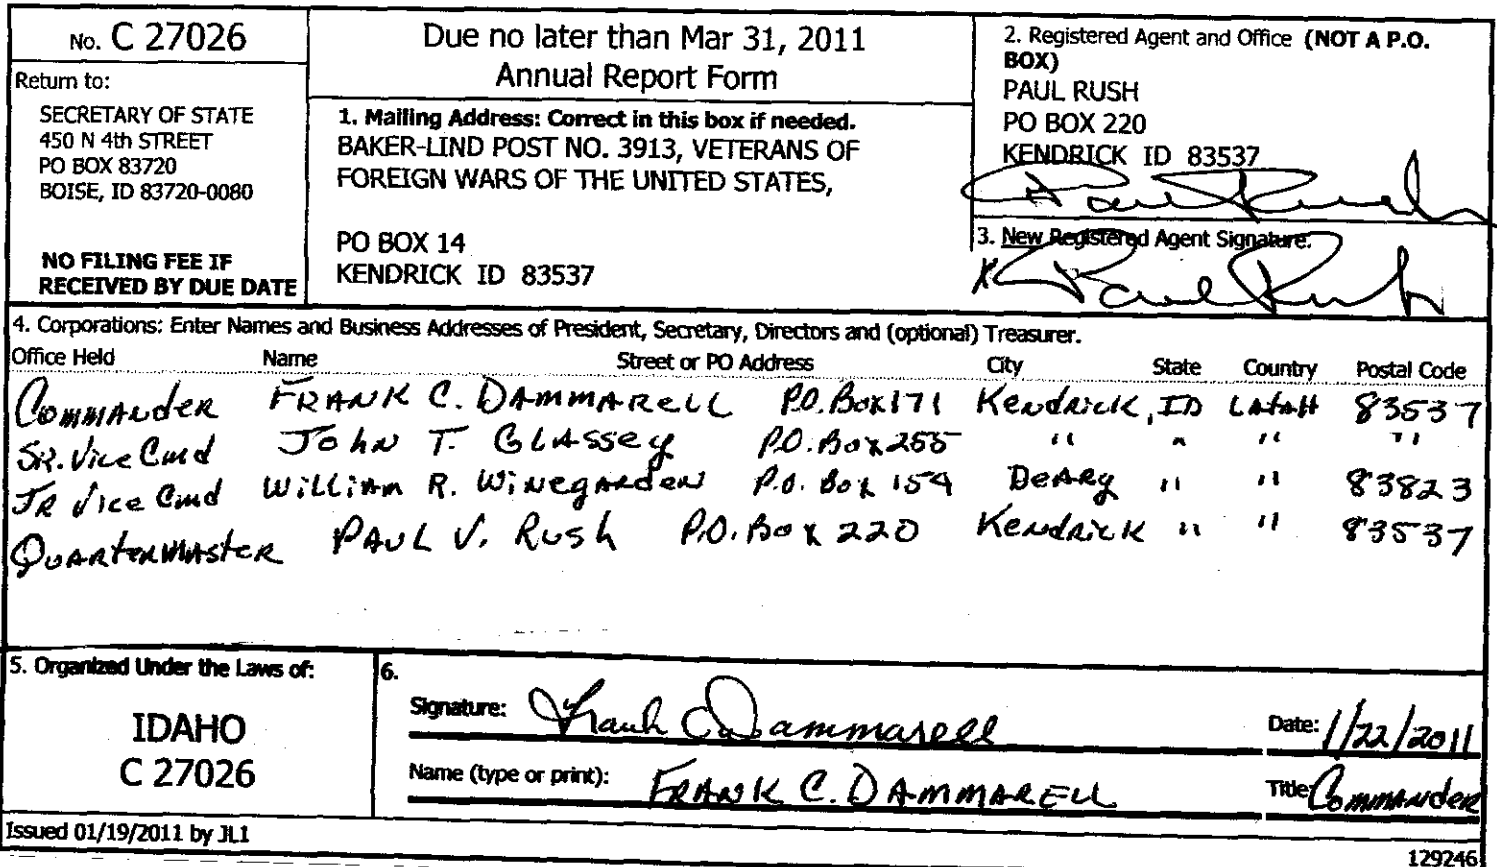 No. C 27026
Return to:
SECRETARY OF STATE
450 N 4th STREET
PO BOX 83720
BOISE, ID 83720-0080
NO FILING FEE IF
RECEIVED BY DUE DATE
Due no later than Mar 31, 2011
Annual Report Form
1. Mailing Address: Correct in this box if needed.
BAKER-LIND POST NO. 3913, VETERANS OF
FOREIGN WARS OF THE UNITED STATES,
PO BOX 14
KENDRICK ID 83537
2. Registered Agent and Office (NOT A P.O.
BOX)
PAUL RUSH
PO BOX 220
KENDRICK ID 83537
Paul Rush
3. New Registered Agent Signature.
X Paul Rush
4. Corporations: Enter Names and Business Addresses of President, Secretary, Directors and (optional) Treasurer.
Office Held Name Street or PO Address City State Country Postal Code
Commander FRANK C. DAMMARELL P.O. Box 171 Kendrick, ID Latah 83537
SR. Vice Cmd John T. Glassey P.O. Box 255 " " " "
JR Vice Cmd William R. Winegarden P.O. Box 154 Deary " " 83823
Quartermaster PAUL V. Rush P.O. Box 220 Kendrick " " 83537
5. Organized Under the Laws of:
IDAHO
C 27026
6.
Signature: Frank C Dammarell Date: 1/22/2011
Name (type or print): FRANK C. DAMMARELL Title: Commander
Issued 01/19/2011 by JL1
129246